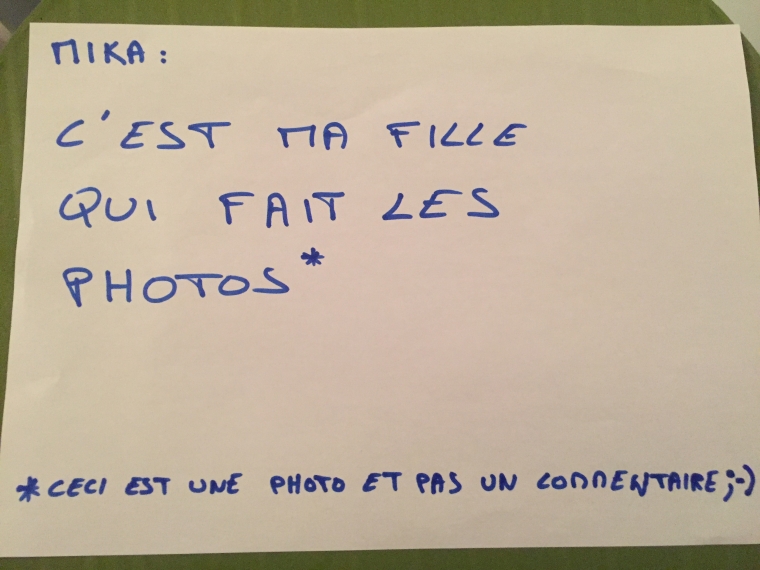 MIKA :
C'EST MA FILLE
QUI FAIT LES
PHOTOS*
*CECI EST UNE PHOTO ET PAS UN COMMENTAIRE ;-)